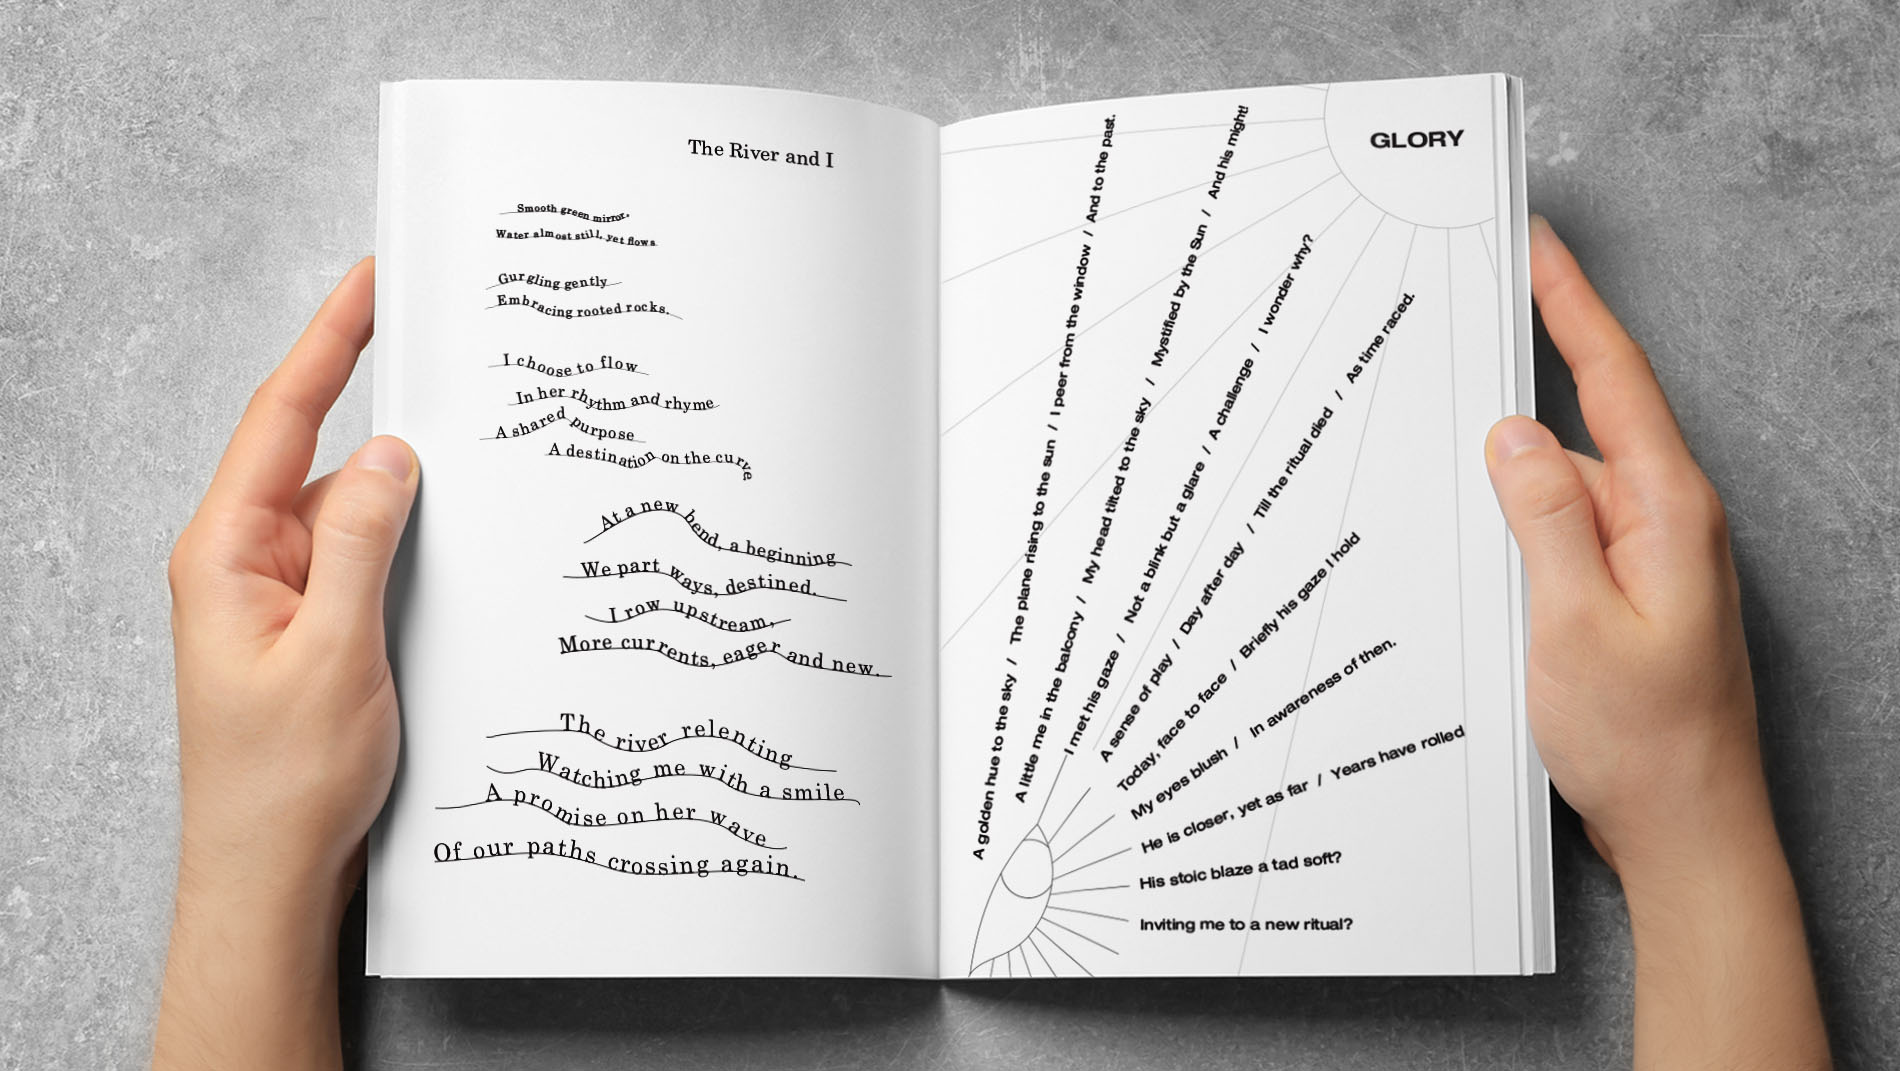 The River and I
Smooth green mirror.
Water almost still, yet flows
Gurgling gently
Embracing rooted rocks.
I choose to flow
In her rhythm and rhyme
A shared purpose
A destination on the curve
At a new bend, a beginning
We part ways, destined.
I row upstream,
More currents, eager and new.
The river relenting
Watching me with a smile
A promise on her wave
Of our paths crossing again.
GLORY
A golden hue to the sky / The plane rising to the sun / I peer from the window / And to the past.
A little me in the balcony / My head tilted to the sky / Mystified by the Sun / And his might!
I met his gaze / Not a blink but a glare / A challenge / I wonder why?
A sense of play / Day after day / Till the ritual died / As time raced.
Today, face to face / Briefly his gaze I hold
My eyes blush / In awareness of then.
He is closer, yet as far / Years have rolled
His stoic blaze a tad soft?
Inviting me to a new ritual?